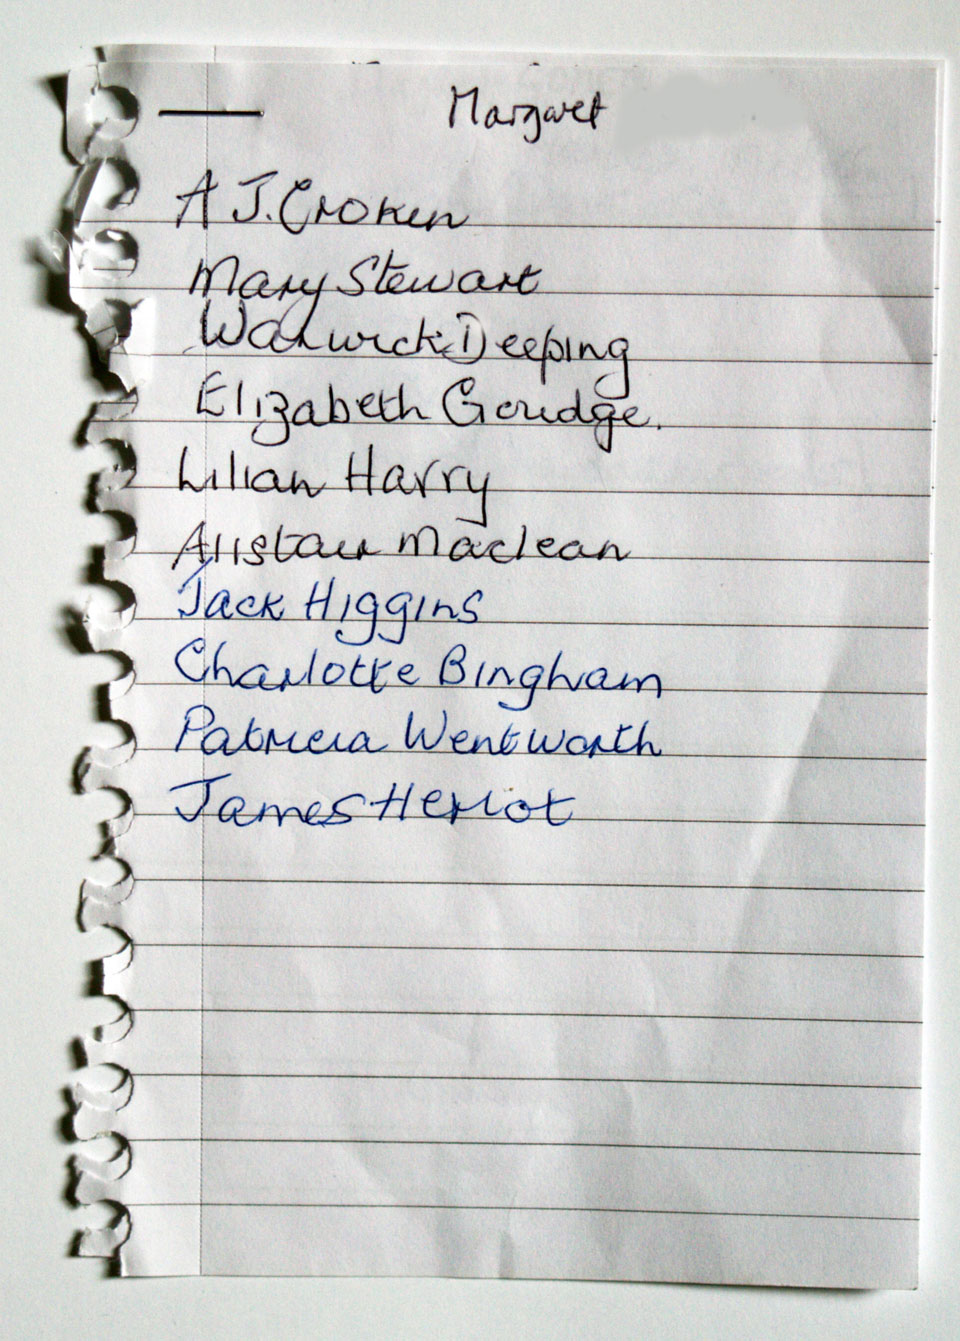 Margaret
A J. Cronin
Mary Stewart
Warwick Deeping
Elizabeth Goudge.
Lilian Harry
Alistair Maclean
Jack Higgins
Charlotte Bingham
Patricia Wentworth
James Herlot